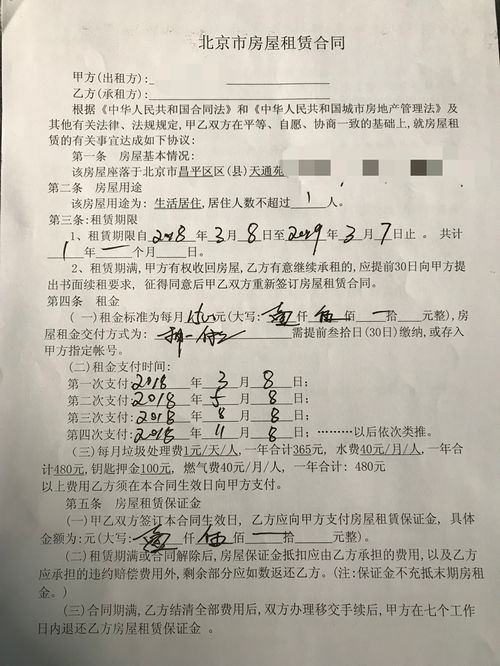 北京市房屋租赁合同
甲方(出租方):
乙方(承租方):
根据《中华人民共和国合同法》和《中华人民共和国城市房地产管理法》及
其他有关法律、法规规定,甲乙双方在平等、自愿、协商一致的基础上,就房屋租
赁的有关事宜达成如下协议:
第一条 房屋基本情况:
该房屋座落于北京市昌平区区(县)天通苑
第二条 房屋用途
该房屋用途为: 生活居住,居住人数不超过 1 人。
第三条:租赁期限
1、租赁期限自2018年3月8日至2019年3月7日止 。 共计
1 年 一 个月 日。
2、租赁期满,甲方有权收回房屋,乙方有意继续承租的,应提前30日向甲方提
出书面续租要求, 征得同意后甲乙双方重新签订房屋租赁合同。
第四条 租金
(一)租金标准为每月 元(大写: 壹 仟 伍 佰 一 拾 元整),房
屋租金交付方式为: 押一付三 需提前叁拾日(30日)缴纳,或存入
甲方指定帐号。
(二)租金支付时间:
第一次支付:2018 年 3 月 8 日;
第二次支付:2018 年 5 月 8 日;
第三次支付:2018 年 8 月 8 日;
第四次支付:2018 年 11 月 8 日; ………以后依次类推。
(三)每月垃圾处理费1元/天/人,一年合计365元, 水费40元/月/人,一年合
计480元,钥匙押金100元, 燃气费40元/月/人, 一年合计: 480元
以上费用乙方须在本合同生效日向甲方支付。
第五条 房屋租赁保证金
(一)甲乙双方签订本合同生效日, 乙方应向甲方支付房屋租赁保证金, 具体
金额为:元(大写: 壹 仟 伍 佰 一 拾 元整)。
(二)租赁期满或合同解除后,房屋保证金抵扣应由乙方承担的费用,以及乙方
应承担的违约赔偿费用外,剩余部分应如数返还乙方。(注:保证金不充抵末期房租
金。)
(三)合同期满,乙方结清全部费用后,双方办理移交手续后,甲方在七个工作
日内退还乙方房屋租赁保证金 。